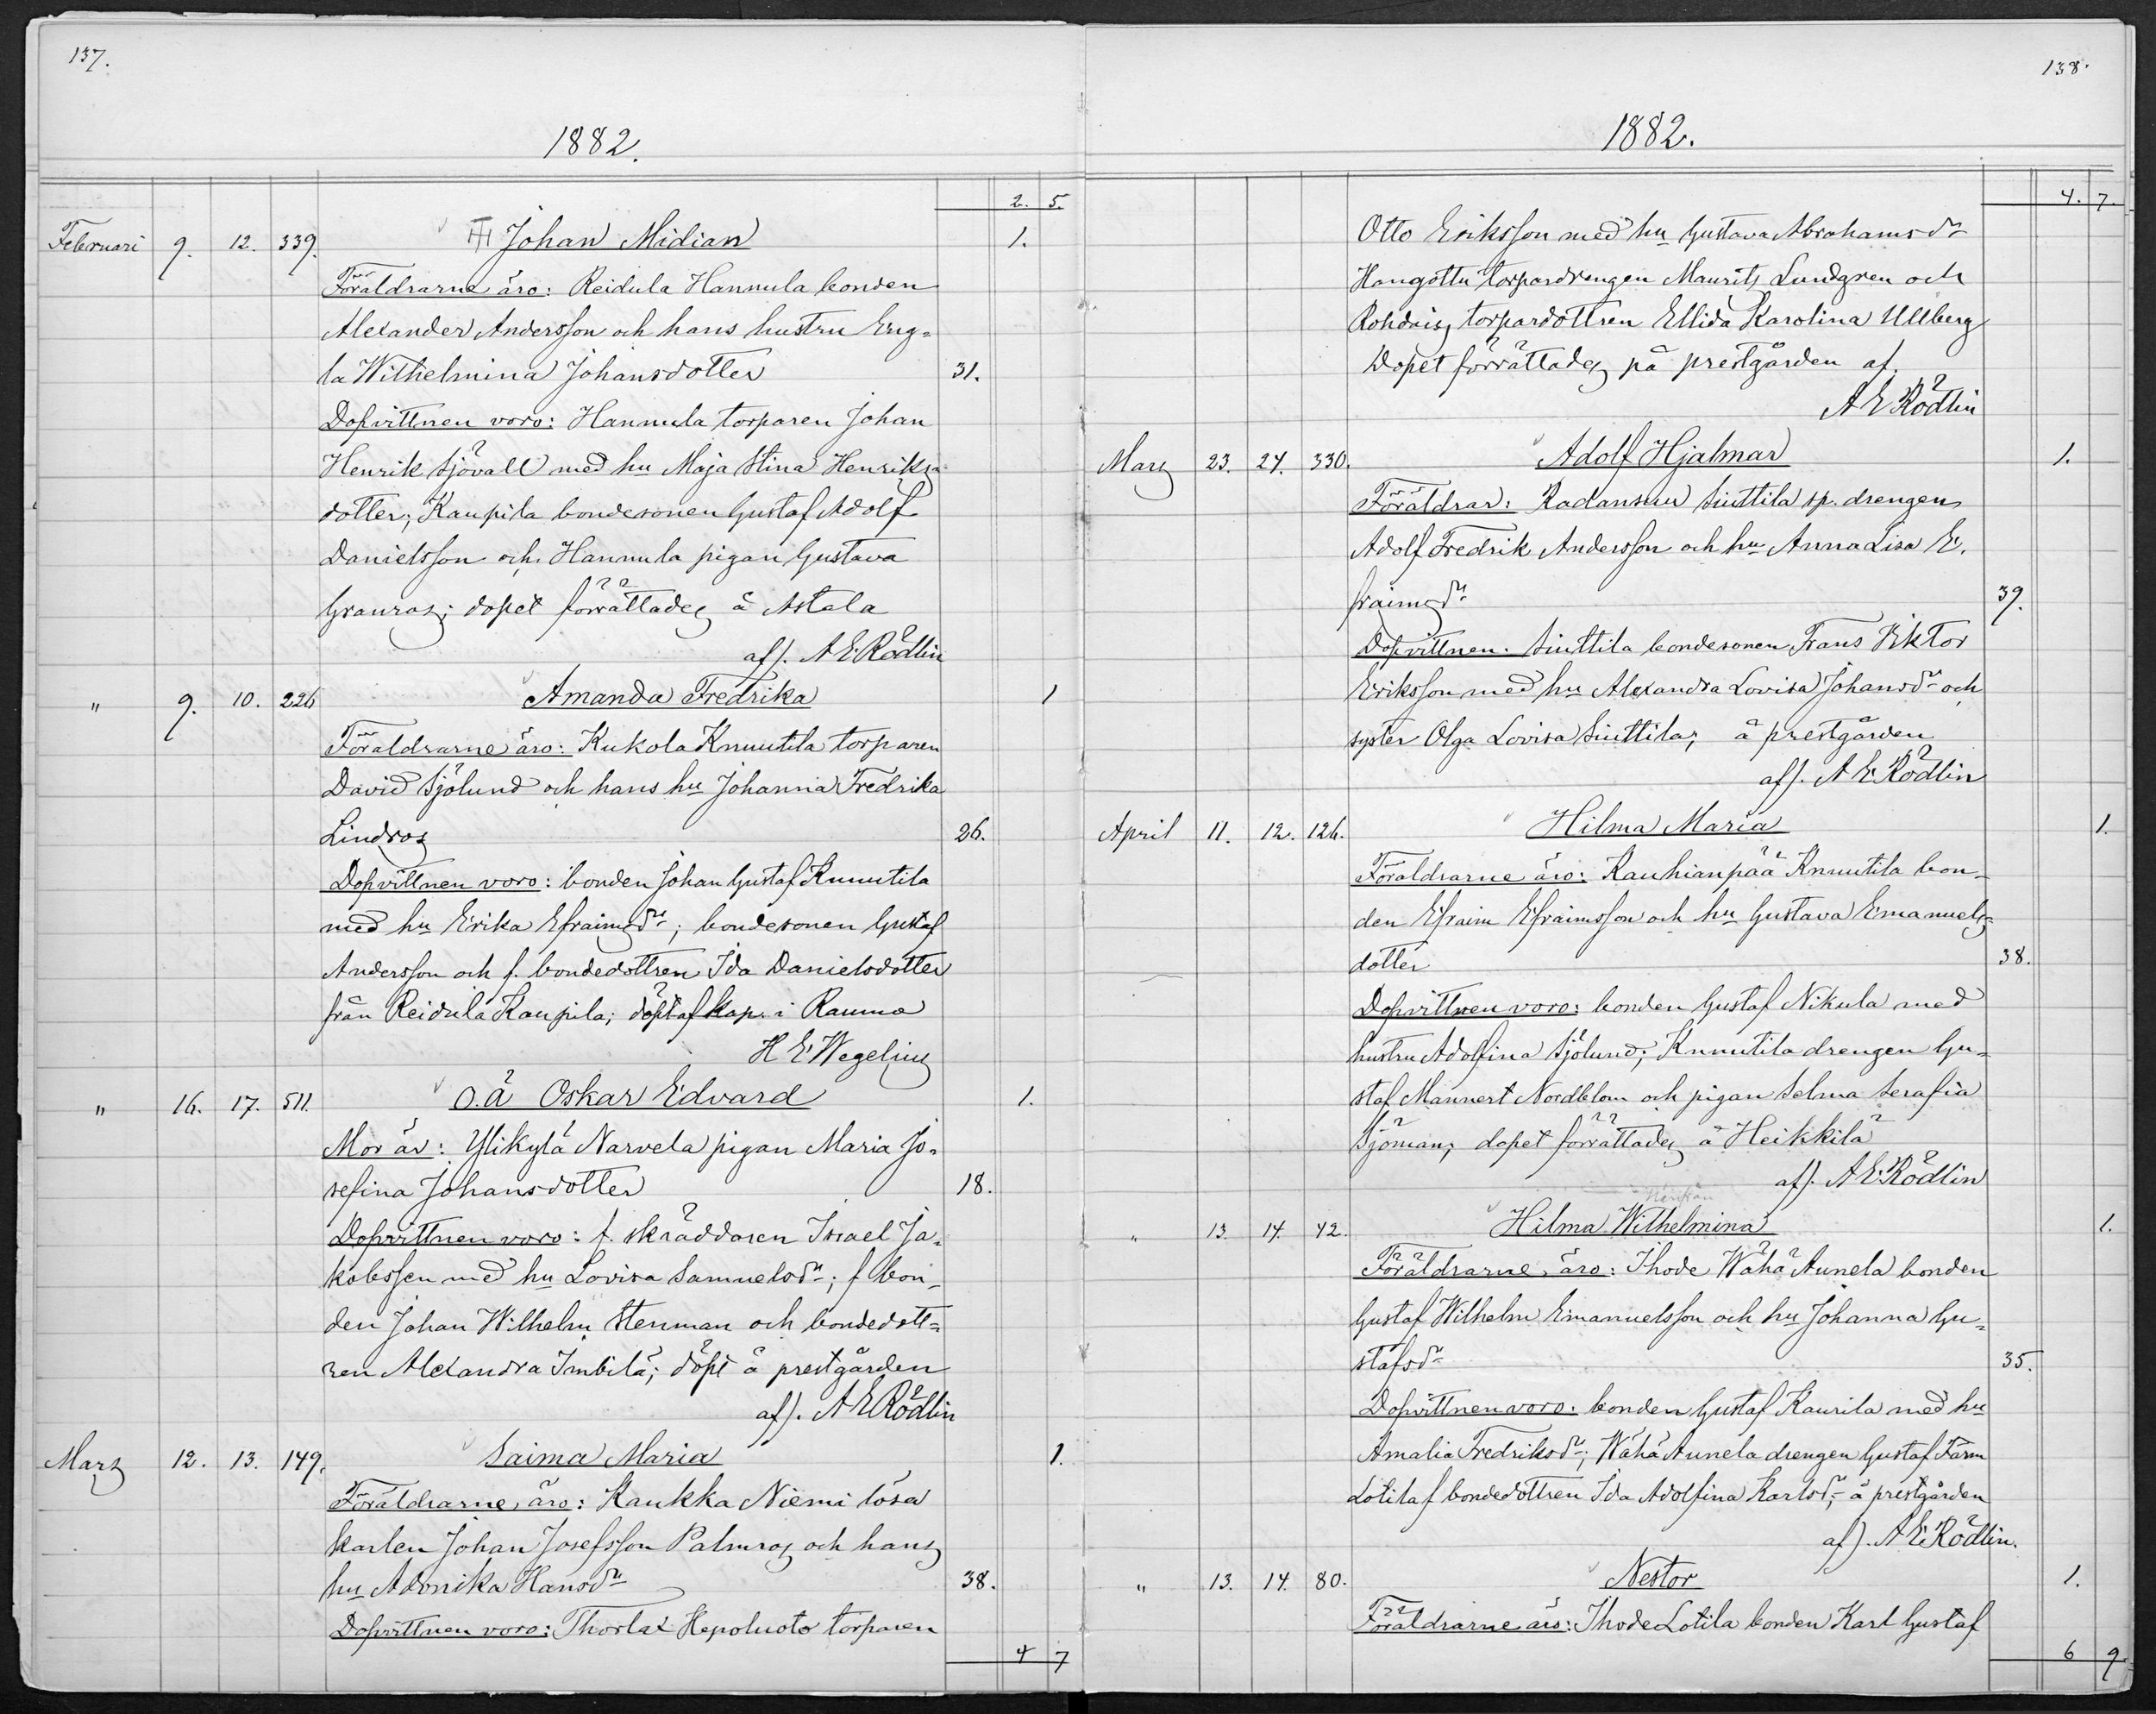 137.
1882.
2. 5.
Februari 9. 12. 339. Johan Midian 1.
Föräldrarne äro: Reidula Hannula bonden
Alexander Andersson och hans hustru Eng-
la Wilhelmina Johansdotter 31.
Dopvittnen voro: Hannula torparen Johan
Henrik Sjövall med hu Maja Stina Henriks-
dotter; Kaupila bondesonen Gustaf Adolf
Danielsson och Hannula pigan Gustava
Granros; dopet förrättades å Astala
af). A E Rödlin
" 9. 10. 226 Amanda Fredrika 1
Föräldrarne äro: Kukola Knuutila torparen
David Sjölund och hans hu Johanna Fredrika
Lindros 26.
Dopvittnen voro: bonden Johan Gustaf Knuutila
med hu Erika Efraimsdr; bondesonen Gustaf
Andersson och f. bondedottren Ida Danielsdotter
från Reidula Kaupila; döpt af kap. i Raumo
H E Wegelius
" 16. 17. 511. o.ä Oskar Edvard 1.
Mor är: Ylikylä Narvela pigan Maria Jo-
sefina Johansdotter 18.
Dopvittnen voro: f. skräddaren Israel Ja-
kobsson med hu Lovisa Samuelsdr; f bon-
den Johan Wilhelm Stenman och bondedott-
ren Alexandra Imbilä; döpt å prestgården
af). A E Rödlin
Mars 12. 13. 149. Saima Maria 1.
Föräldrarne äro: Kaukka Niemi lösa
karlen Johan Josefsson Palmros och hans
hu Adonika Hansdr 38.
Dopvittnen voro: Thorlax Hepoluoto torparen
4 7
138.
1882.
4. 7.
Otto Eriksson med hu Gustava Abrahamsdr
Hangottu torpardrengen Maurits Lundgren och
Rohdais torpardottren Ellida Karolina Ullberg
Dopet förrättades på prestgården af.
A E Rödlin
Mars 23. 24. 330. Adolf Hjalmar 1.
Föräldrar: Radansuu Siuttila sp. drengen
Adolf Fredrik Andersson och hu Anna Lisa E.
fraimsdr 39.
Dopvittnen: Siuttila bondesonen Frans Viktor
Eriksson med hu Alexandra Lovisa Johansdr och
syster Olga Lovisa Siuttila; å prestgården
af). A E Rödlin
April 11. 12. 126. Hilma Maria 1.
Föräldrarne äro: Kauhianpää Knuutila bon-
den Efraim Efraimsson och hu Gustava Emanuels-
dotter 38.
Dopvittnen voro: bonden Gustaf Nikula med
hustru Adolfina Sjölund; Knuutila drengen Gu-
staf Mannert Nordblom och pigan Selma Serafia
Sjöman; dopet förrättades å Heikkilä
af). A E Rödlin
" 13. 14. 42. Hilma Wilhelmina 1.
Föräldrarne äro: Ihode Wähä Aunela bonden
Gustaf Wilhelm Emanuelsson och hu Johanna Gu-
stafsdr 35.
Dopvittnen voro: bonden Gustaf Kaurila med hu
Amalia Fredriksdr; Wähä Aunela drengen Gustaf Färm
Lotila f bondedottren Ida Adolfina Karlsdr; å prestgården
af). A E Rödlin.
" 13. 14. 80. Nestor 1.
Föräldrarne äro: Ihode Lotila bonden Karl Gustaf
6 9.